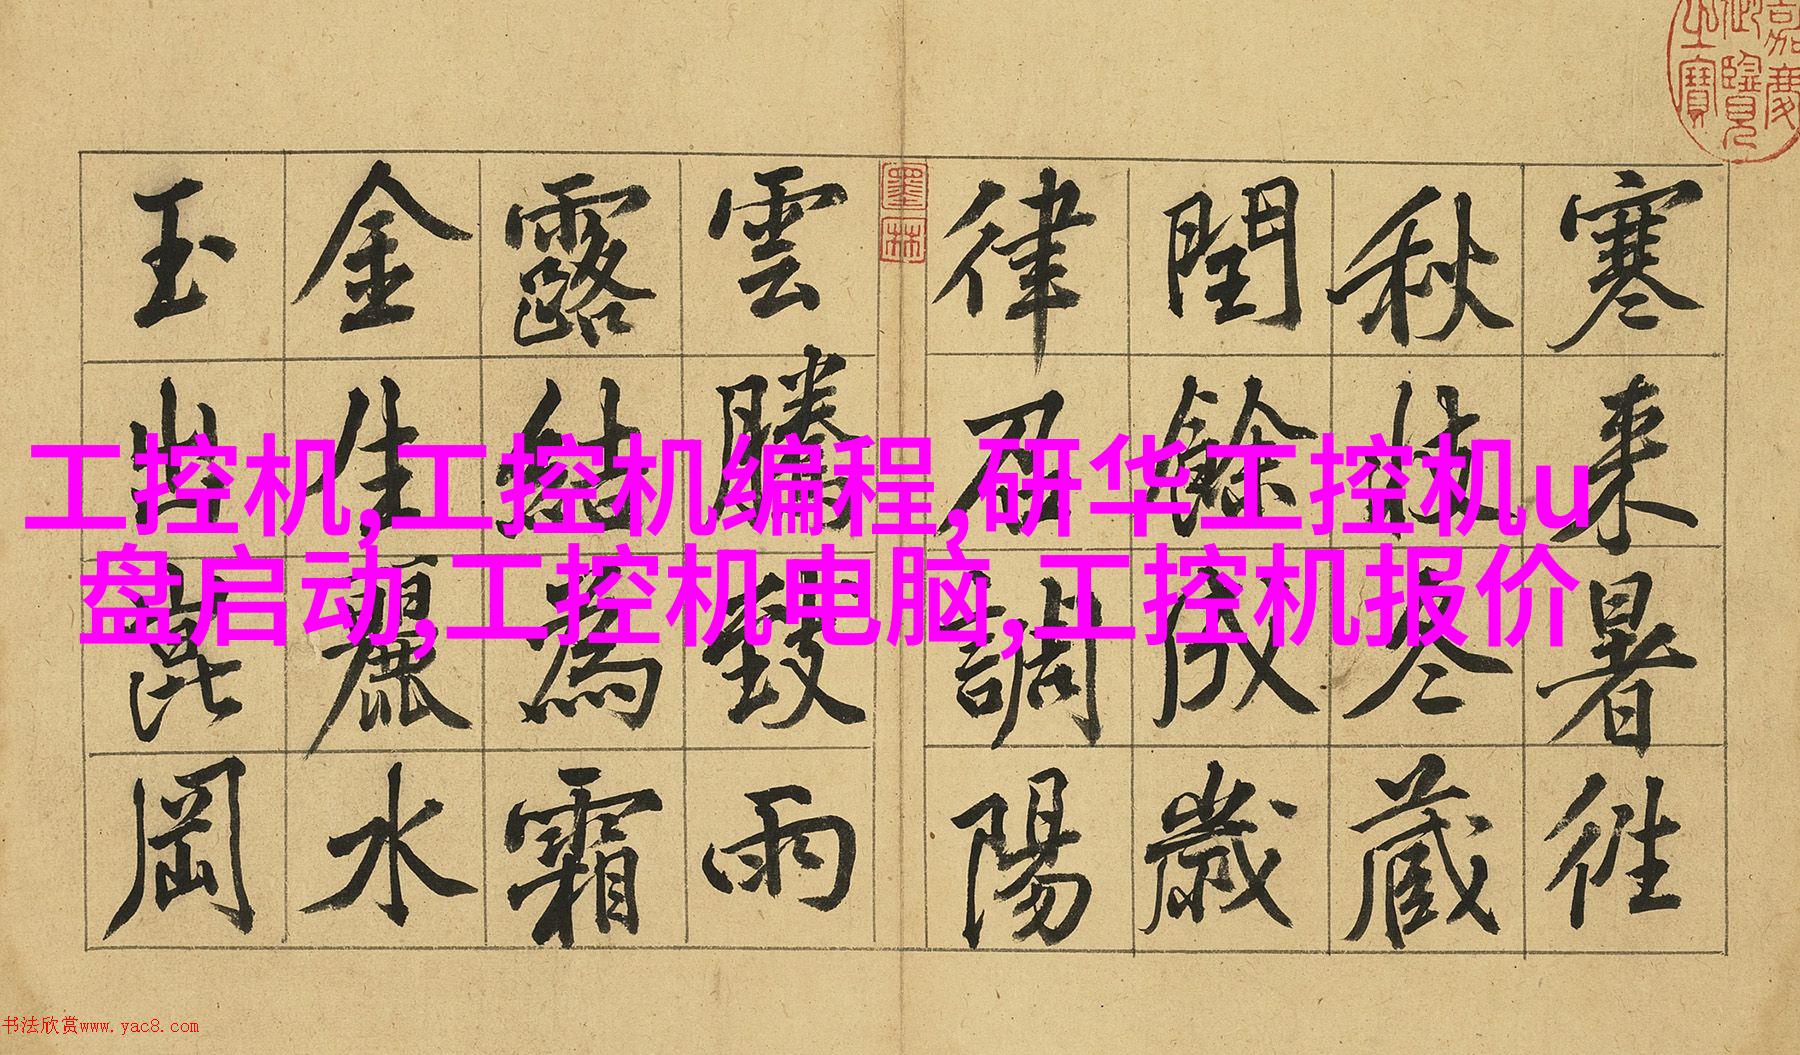 嘉慶
御覽
之寶
寒來暑往
秋收冬藏
閏餘成歲
律召調陽
墨林
雲騰致雨
露結為霜
金生麗水
玉出崑岡
工控机,工控机编程,研华工控机u
盘启动,工控机电脑,工控机报价
书法欣赏www.yac8.com